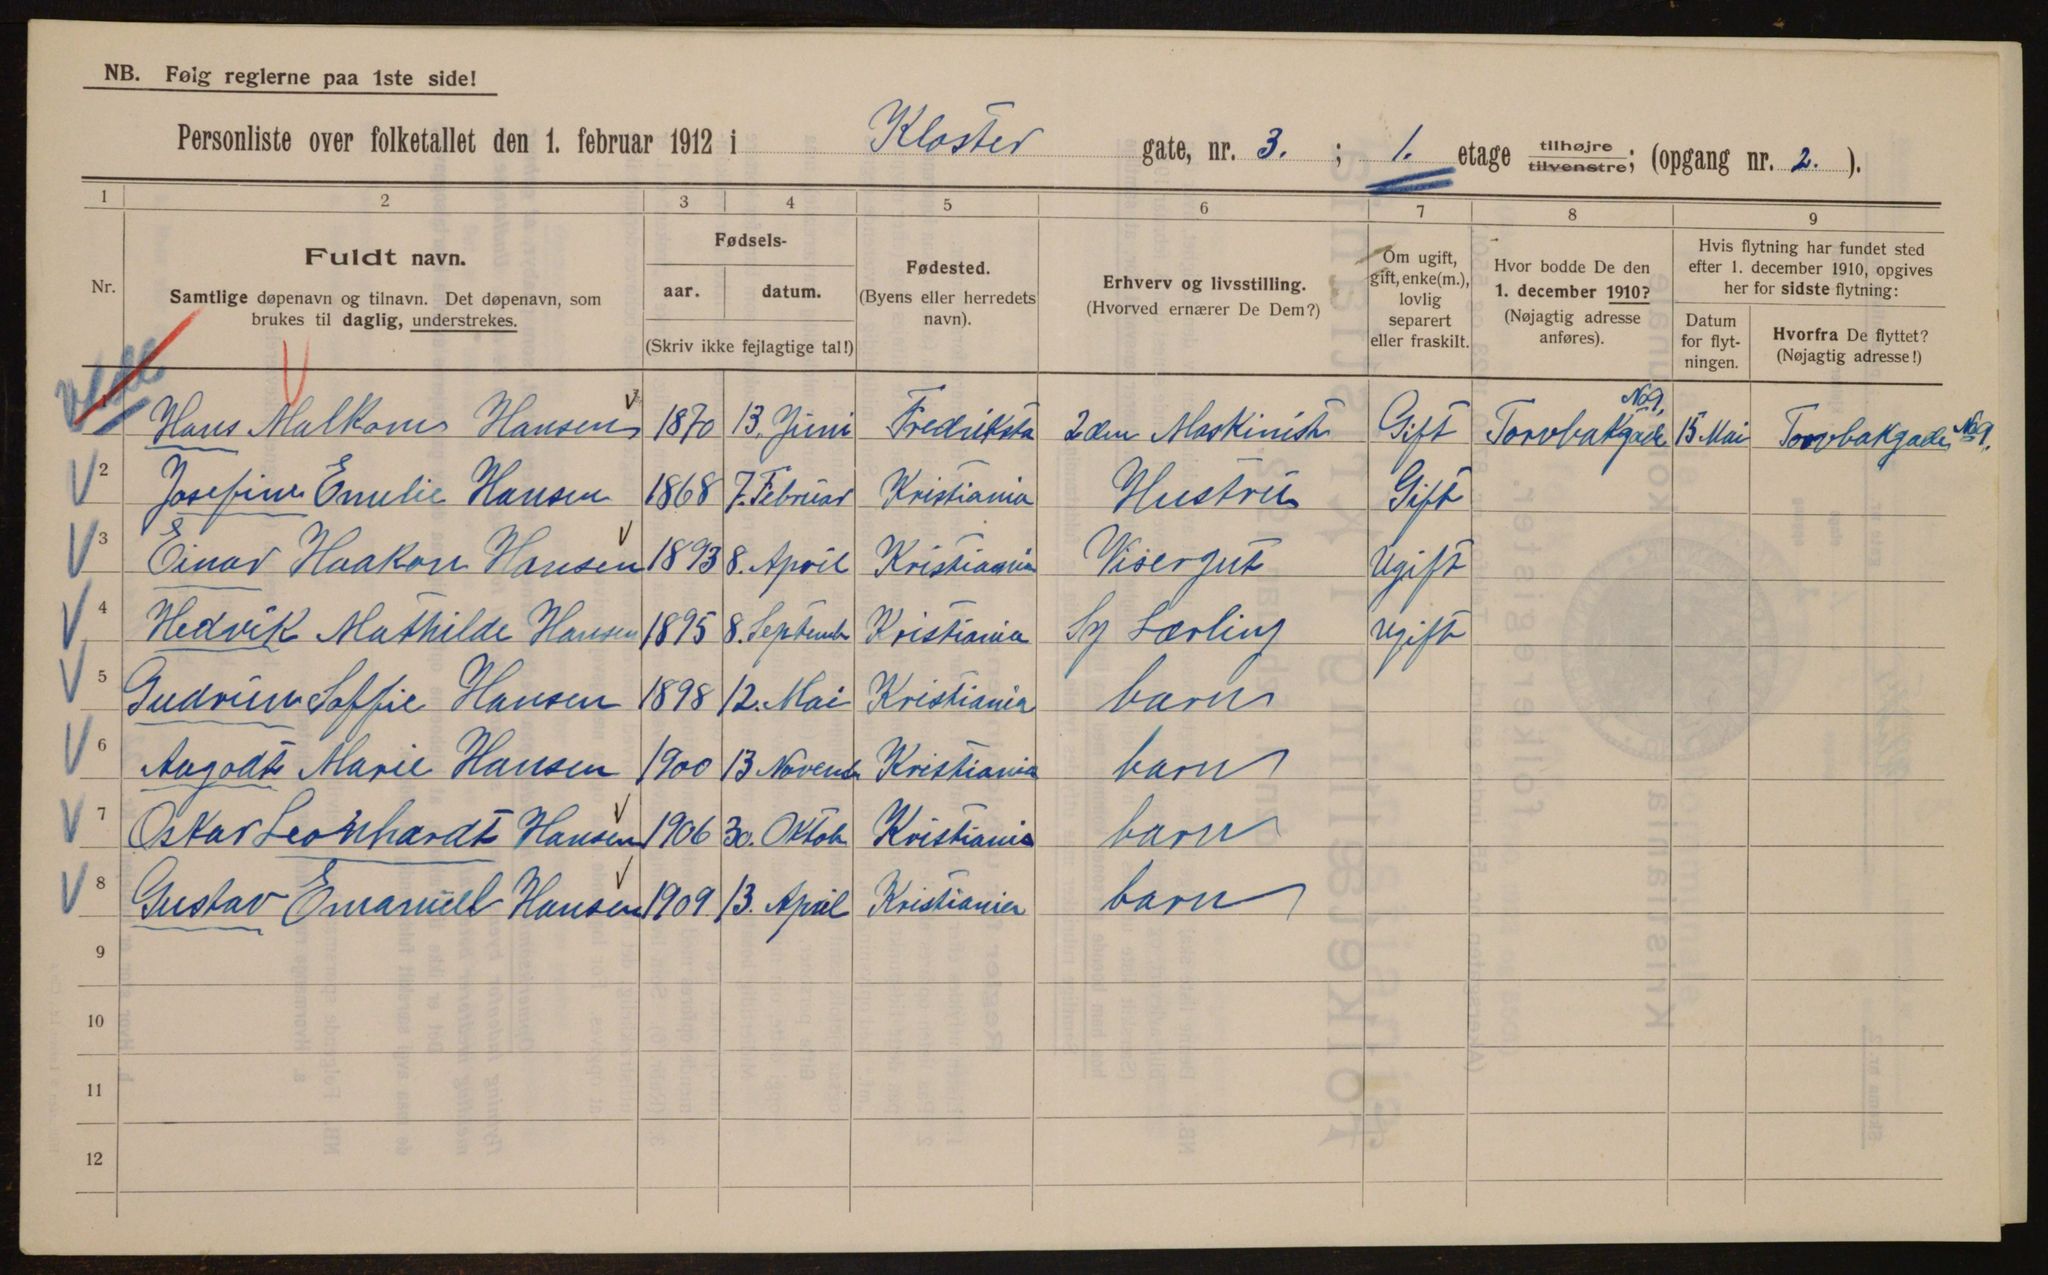 NB. Følg reglerne paa 1ste side!
Personliste over folketallet den 1. februar 1912 i Kloster gate, nr. 3. ; 1. etage tilhøjre tilvenstre; (opgang nr. 2. ).
1 2 3 4 5 6 7 8 9
Nr.
Fuldt navn.
Samtlige døpenavn og tilnavn. Det døpenavn, som
brukes til daglig, understrekes.
Fødsels-
aar. datum.
(Skriv ikke fejlagtige tal!)
Fødested.
(Byens eller herredets
navn).
Erhverv og livsstilling.
(Hvorved ernærer De Dem?)
Om ugift,
gift, enke(m.),
lovlig
separert
eller fraskilt.
Hvor bodde De den
1. december 1910?
(Nøjagtig adresse
anføres).
Hvis flytning har fundet sted
efter 1. december 1910, opgives
her for sidste flytning:
Datum
for flyt-
ningen.
Hvorfra De flyttet?
(Nøjagtig adresse!)
1 Hans Malkom Hansen 1870 13. Juni Fredriksta 2den Maskinist Gift Torvbakgade No 9. 15 Mai Torvbakgade No 9.
2 Josefine Emelie Hansen 1868 7. Februar Kristiania Hustru Gift
3 Einar Haakon Hansen 1893 8. April Kristiania Visergut Ugift
4 Hedvik Mathilde Hansen 1895 8. Septemb Kristiania Sy Lærling Ugift
5 Gudrun Soffie Hansen 1898 12. Mai Kristiania barn
6 Augodta Marie Hansen 1900 13 Novemb Kristiania barn
7 Oskar Leonhardt Hansen 1906 30. Oktob Kristiania barn
8 Gustav Emanuel Hansen 1909 13. April Kristiania barn
9
10
11
12